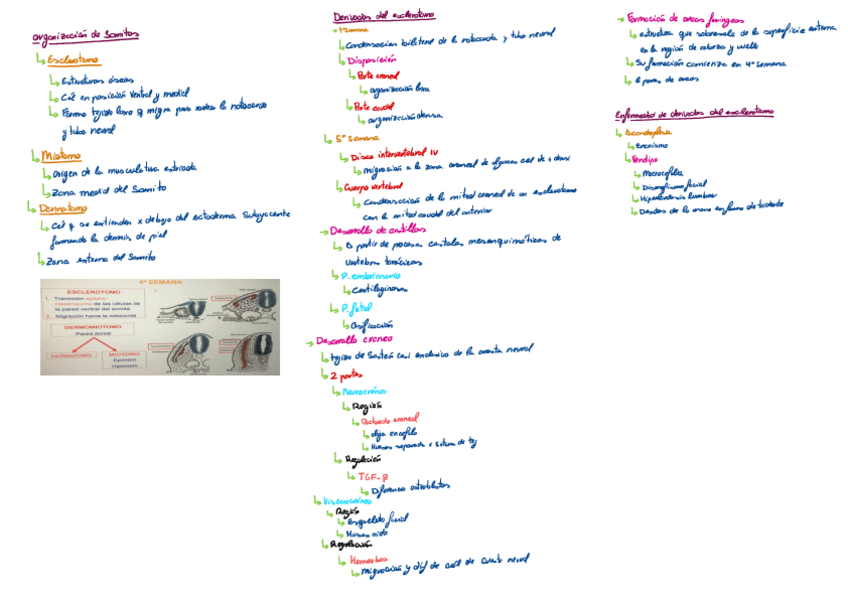 Organización de Somitos
Esclerotomo
Estructuras óseas
Cél en posición ventral y medial
Forma tejido laxo q migra para rodear la notocorda
y tubo neural
Miotomo
Origen de la musculatura estriada
Zona medial del Somito
Dermatomo
Cél q se extienden x debajo del ectoderma Subyacente
formando la dermis de piel
Zona externa del Somito
4ª SEMANA
ESCLEROTOMO
1. Transición epitelio
mesénquima de las células de
la pared ventral del somita
2. Migración hacia la notocorda
DERMOMIOTOMO
Pared dorsal
DERMATOMO
MIOTOMO
Epímero
Hipómero
Derivados del esclerotomo
Semana
Condensación bilateral de la notocorda y tubo neural
Disposición
Parte craneal
organización laxa
Parte caudal
organización densa
5ª Semana
Disco intervertebral IV
migración a la zona craneal de algunas cél de
Cuerpo vertebral
Condensación de la mitad craneal de un esclerotomo
con la mitad caudal del anterior
Desarrollo de costillas
A partir de procesos costales mesenquimáticos de
vértebras torácicas
P. embrionario
Cartilaginosas
P. fetal
Osificación
Desarrollo craneo
tejido de Sostén casi exclusivo de la cresta neural
2 partes
Neurocráneo
Región
craneal
aloja encéfalo
Huesos separados x sutura de tej
Regulación
TGF-β
Diferencia osteoblastos
Viscerocráneo
Región
esqueleto facial
Huesos oído
Regulación
Homeobox
Migración y dif de cél de cresta neural
Formación de arcos faríngeos
estructura que sobresale de la superficie externa
en la región de cabeza y cuello
Su formación comienza en 4ª semana
6 pares de arcos
Enfermedad de derivados del esclerotomo
Acondroplasia
Enanismo
Fenotipo
Macrocefalia
facial
Hiperlordosis lumbar
Dedos de la mano en forma de tridente